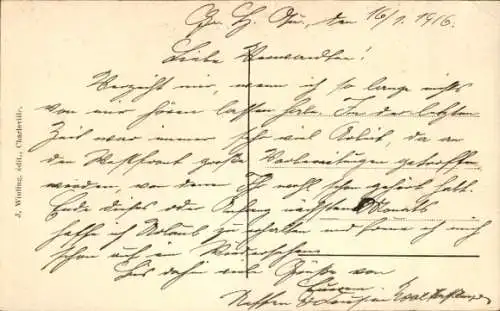 Gr. H. Qu., den 16/1. 1916.
Liebe Verwandten!
Verzeiht mir, wenn ich so lange nichts
von mir hören lassen habe. In der letzten
Zeit war immer sehr viel Arbeit, da an
der Westfront große Vorbereitungen getroffen
werden, von dem Ihr wohl schon gehört habt.
Ende dieses oder Anfang nächsten Monats
hoffe ich Urlaub zu erhalten und freue ich mich
schon auf ein Wiedersehen.
Bis dahin viele Grüße von
Eurem
Neffen &
J. Winling, édit., Charleville.